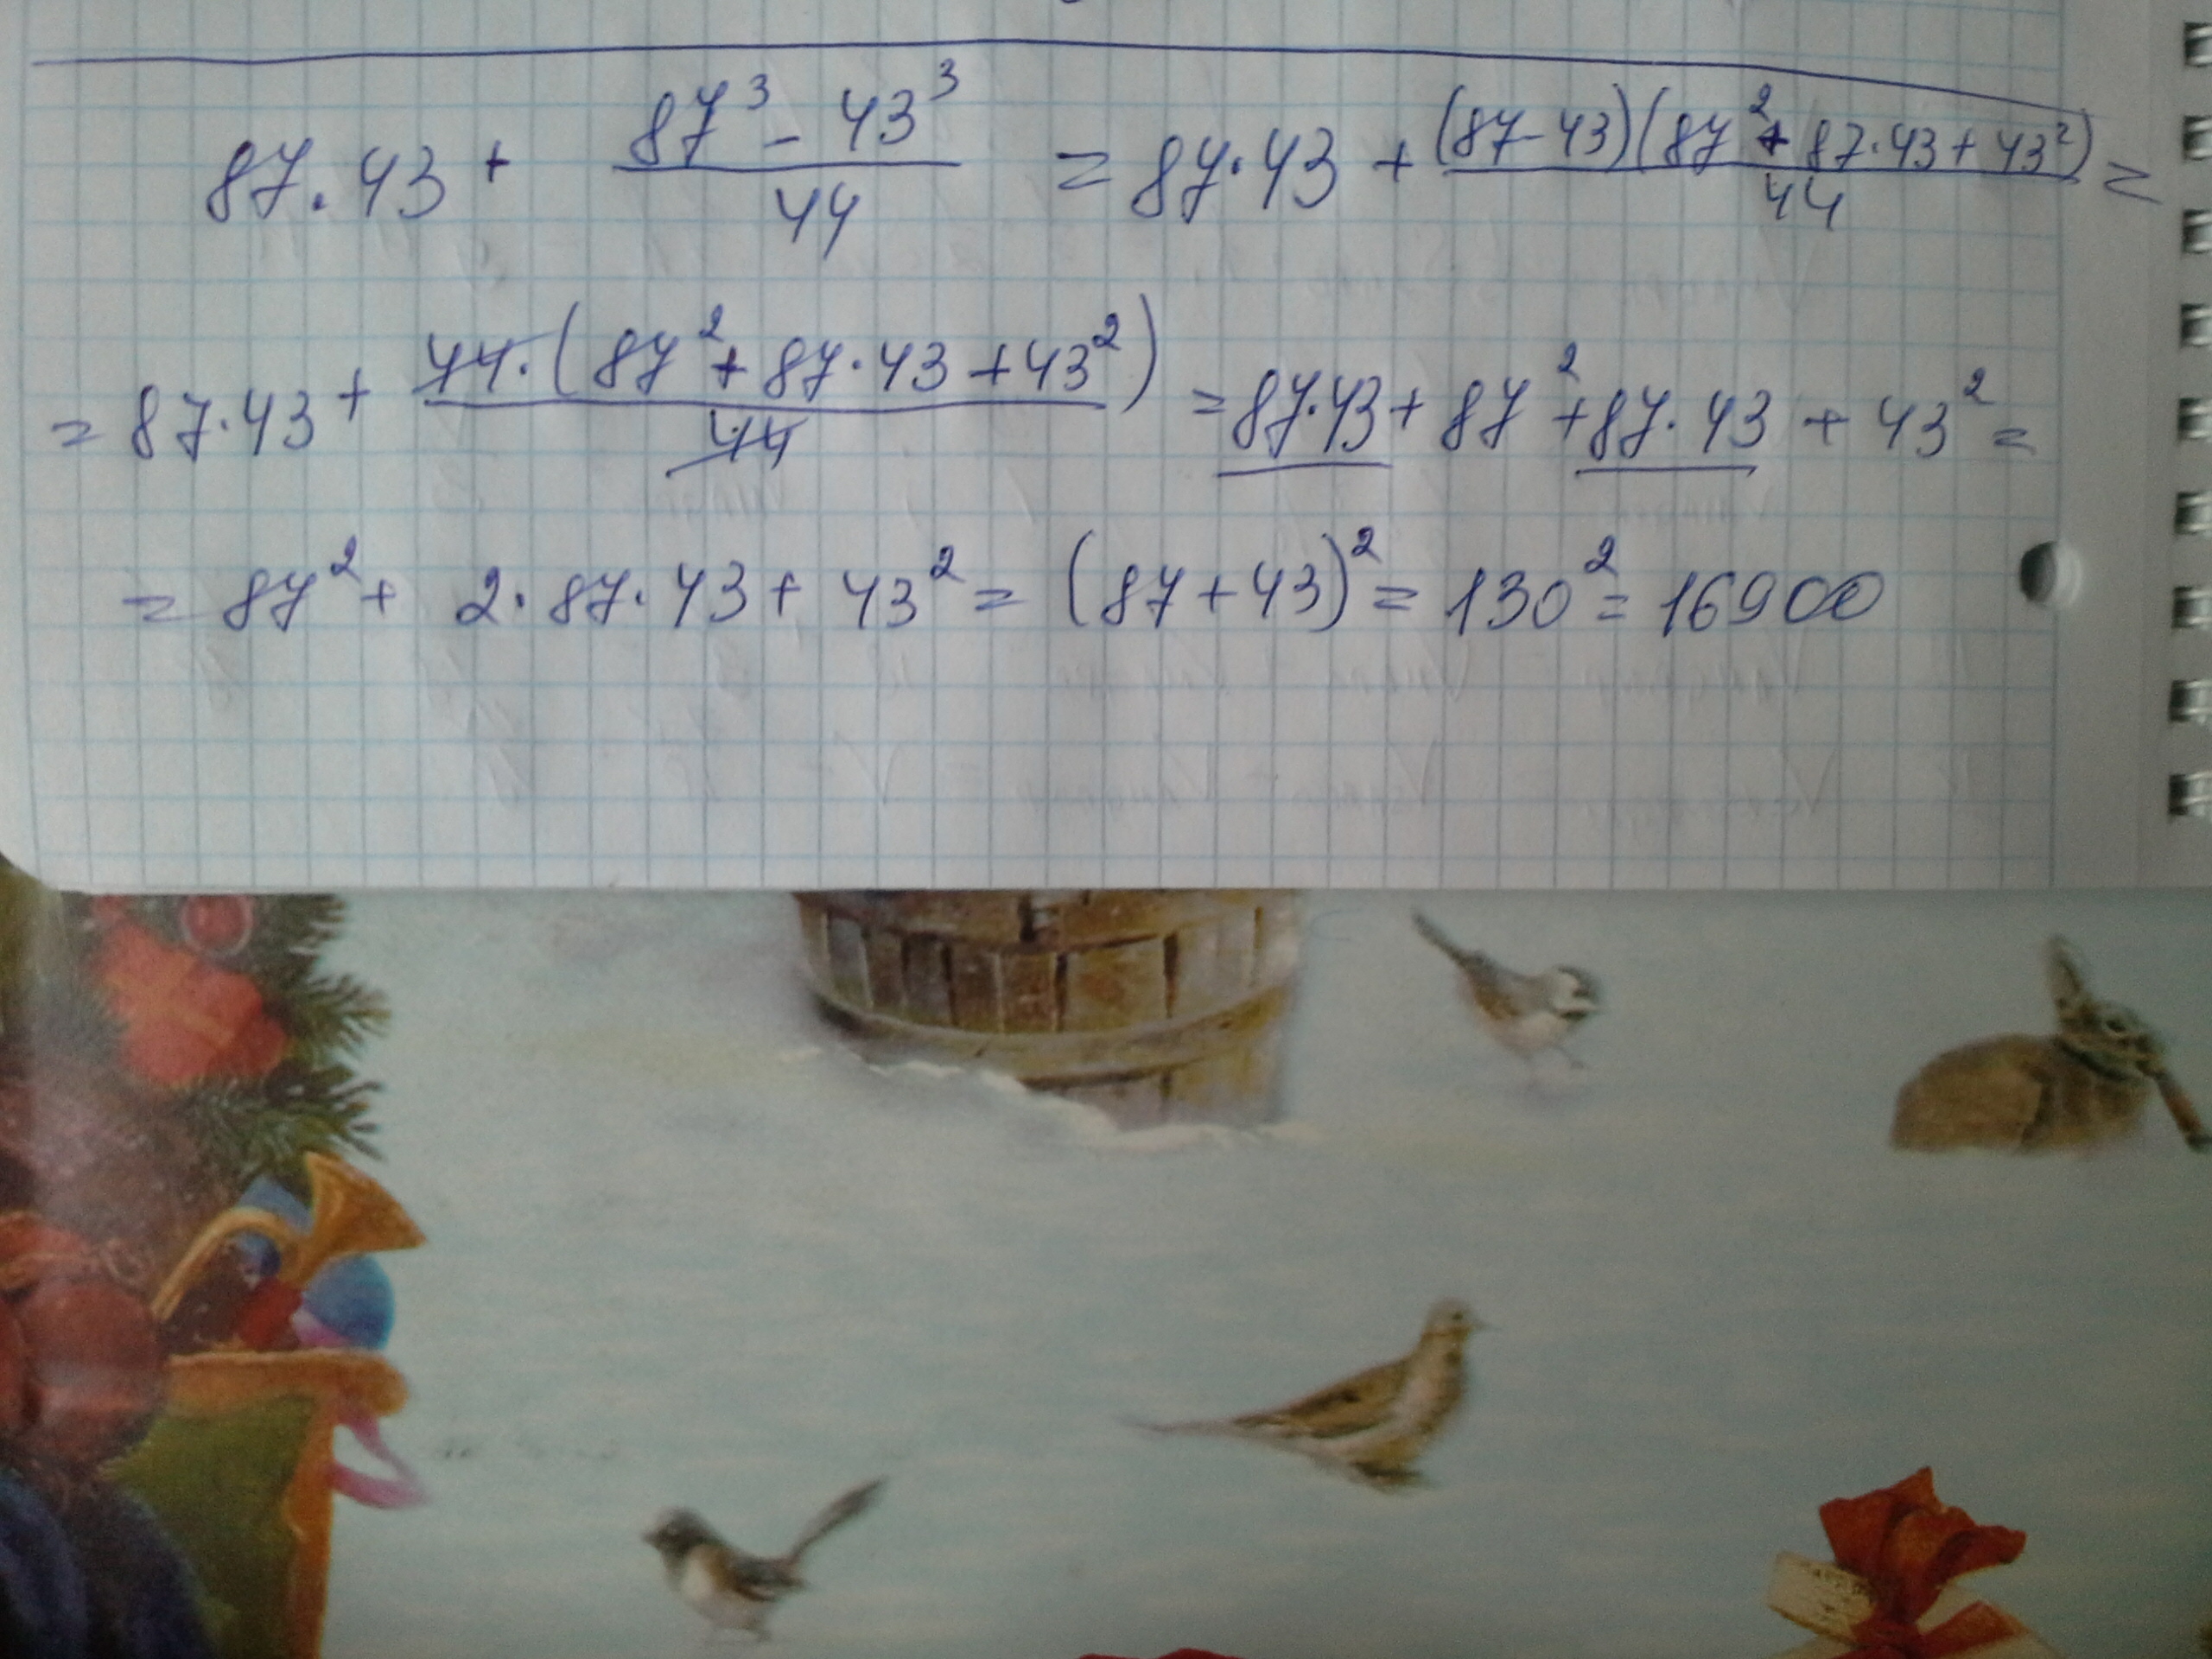 87·43 + (87³ - 43³)/44 = 87·43 + ((87-43)(87² + 87·43 + 43²))/44 =
= 87·43 + (44·(87² + 87·43 + 43²))/44 = 87·43 + 87² + 87·43 + 43² =
= 87² + 2·87·43 + 43² = (87 + 43)² = 130² = 16900